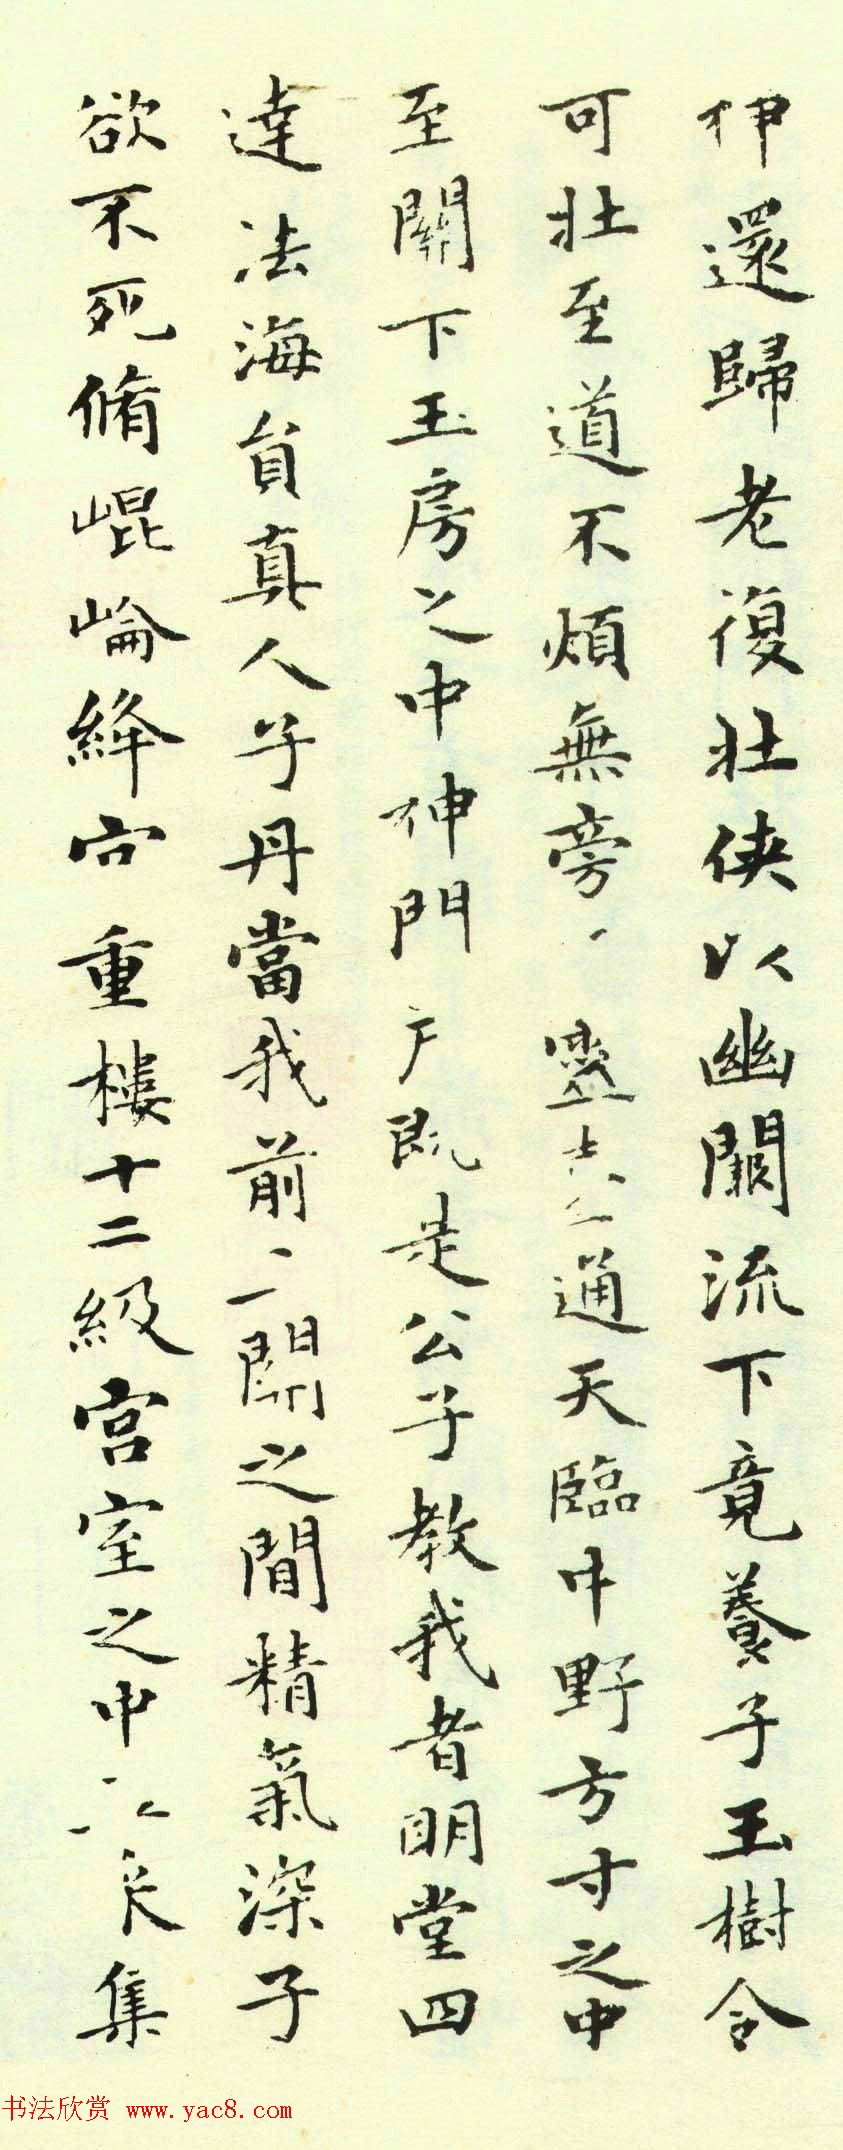 伊還歸老復壯俠以幽闕流下竟養子玉樹令
可壯至道不煩無旁靈臺通天臨中野方寸之中
至關下玉房之中神門戶既是公子教我者明堂四
達法海員真人子丹當我前二關之間精氣深子
欲不死脩崐崘絳宮重樓十二級宮室之中集
书法欣赏 www.yac8.com